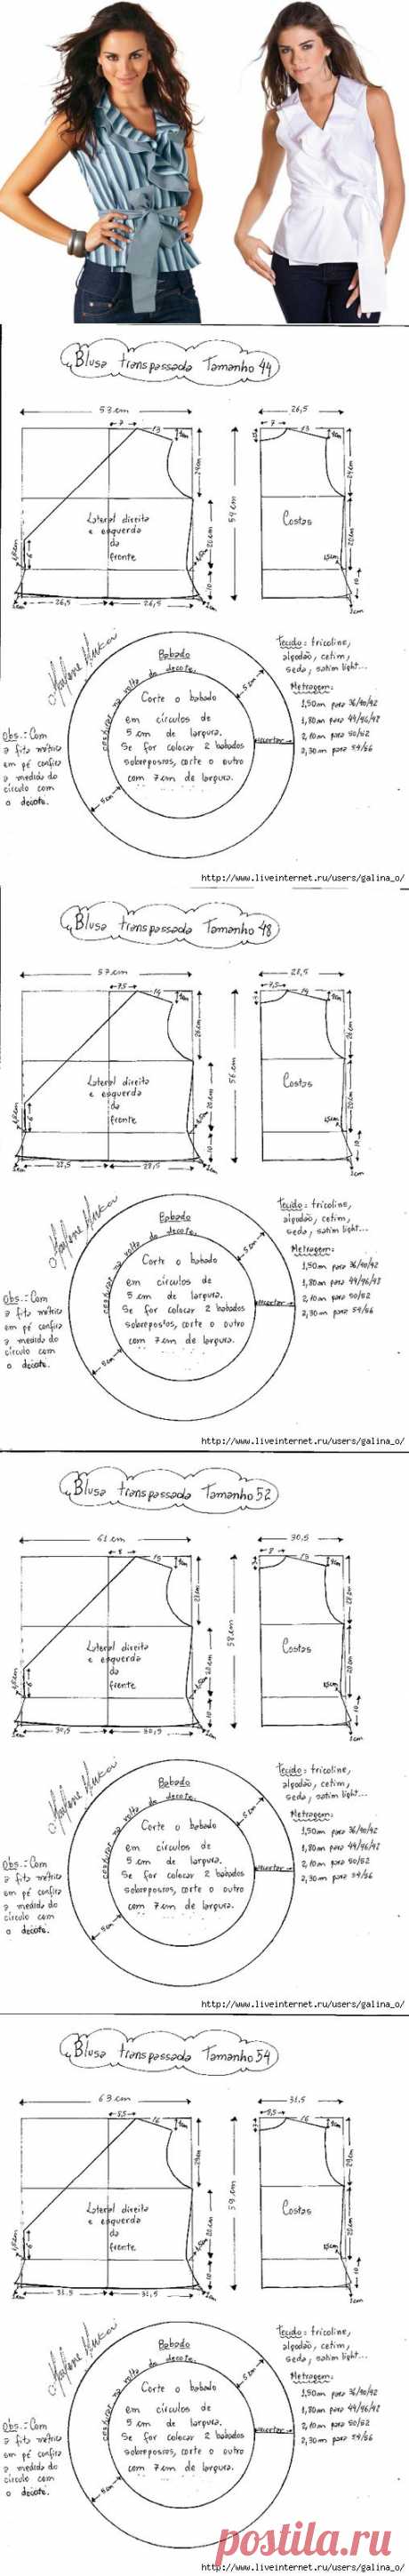 Blusa transpassada Tamanho 44
53 cm
26,5
7
13
7
13
59 cm
20cm
Lateral direita
e esquerda
da
frente
Costas
10
10
26,5
26,5
Babado
costurar na volta do decote.
5 cm
Corte o babado
em círculos de
5 cm de largura.
Se for colocar 2 babados
sobrepostos, corte o outro
com 7 cm de largura.
cortar
5cm
Tecido: tricoline,
algodão, cetim,
seda, satim light...
Metragem:
1,50m para 36/40/42
1,80m para 44/46/48
2,10m para 50/52
2,30m para 54/56
Obs.: Com
a fita métrica
em pé confira
a medida do
círculo com
o decote.
http://www.liveinternet.ru/users/galina_o/
Blusa transpassada Tamanho 48
57 cm
28,5
7,5
14
7,5
14
56 cm
20cm
Lateral direita
e esquerda
da
frente
Costas
10
10
28,5
28,5
Babado
costurar na volta do decote.
5 cm
Corte o babado
em círculos de
5 cm de largura.
Se for colocar 2 babados
sobrepostos, corte o outro
com 7 cm de largura.
cortar
5cm
Tecido: tricoline,
algodão, cetim,
seda, satim light...
Metragem:
1,50m para 36/40/42
1,80m para 44/46/48
2,10m para 50/52
2,30m para 54/56
Obs.: Com
a fita métrica
em pé confira
a medida do
círculo com
o decote.
http://www.liveinternet.ru/users/galina_o/
Blusa transpassada Tamanho 52
61 cm
30,5
8
15
8
15
58 cm
20cm
Lateral direita
e esquerda
da
frente
Costas
10
10
30,5
30,5
Babado
costurar na volta do decote.
5 cm
Corte o babado
em círculos de
5 cm de largura.
Se for colocar 2 babados
sobrepostos, corte o outro
com 7 cm de largura.
cortar
5cm
Tecido: tricoline,
algodão, cetim,
seda, satim light...
Metragem:
1,50m para 36/40/42
1,80m para 44/46/48
2,10m para 50/52
2,30m para 54/56
Obs.: Com
a fita métrica
em pé confira
a medida do
círculo com
o decote.
http://www.liveinternet.ru/users/galina_o/
Blusa transpassada Tamanho 54
63 cm
31,5
8,5
16
8,5
16
59 cm
20cm
Lateral direita
e esquerda
da
frente
Costas
10
10
31,5
31,5
Babado
costurar na volta do decote.
5 cm
Corte o babado
em círculos de
5 cm de largura.
Se for colocar 2 babados
sobrepostos, corte o outro
com 7 cm de largura.
cortar
5cm
Tecido: tricoline,
algodão, cetim,
seda, satim light...
Metragem:
1,50m para 36/40/42
1,80m para 44/46/48
2,10m para 50/52
2,30m para 54/56
Obs.: Com
a fita métrica
em pé confira
a medida do
círculo com
o decote.
postila.ru
http://www.liveinternet.ru/users/galina_o/